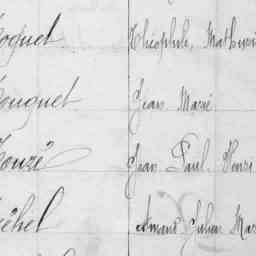 oquet Théophile, Mathuri
ouquet Jean Marie
ouzé Jean Paul Henri
éhel Amand Julien Mar